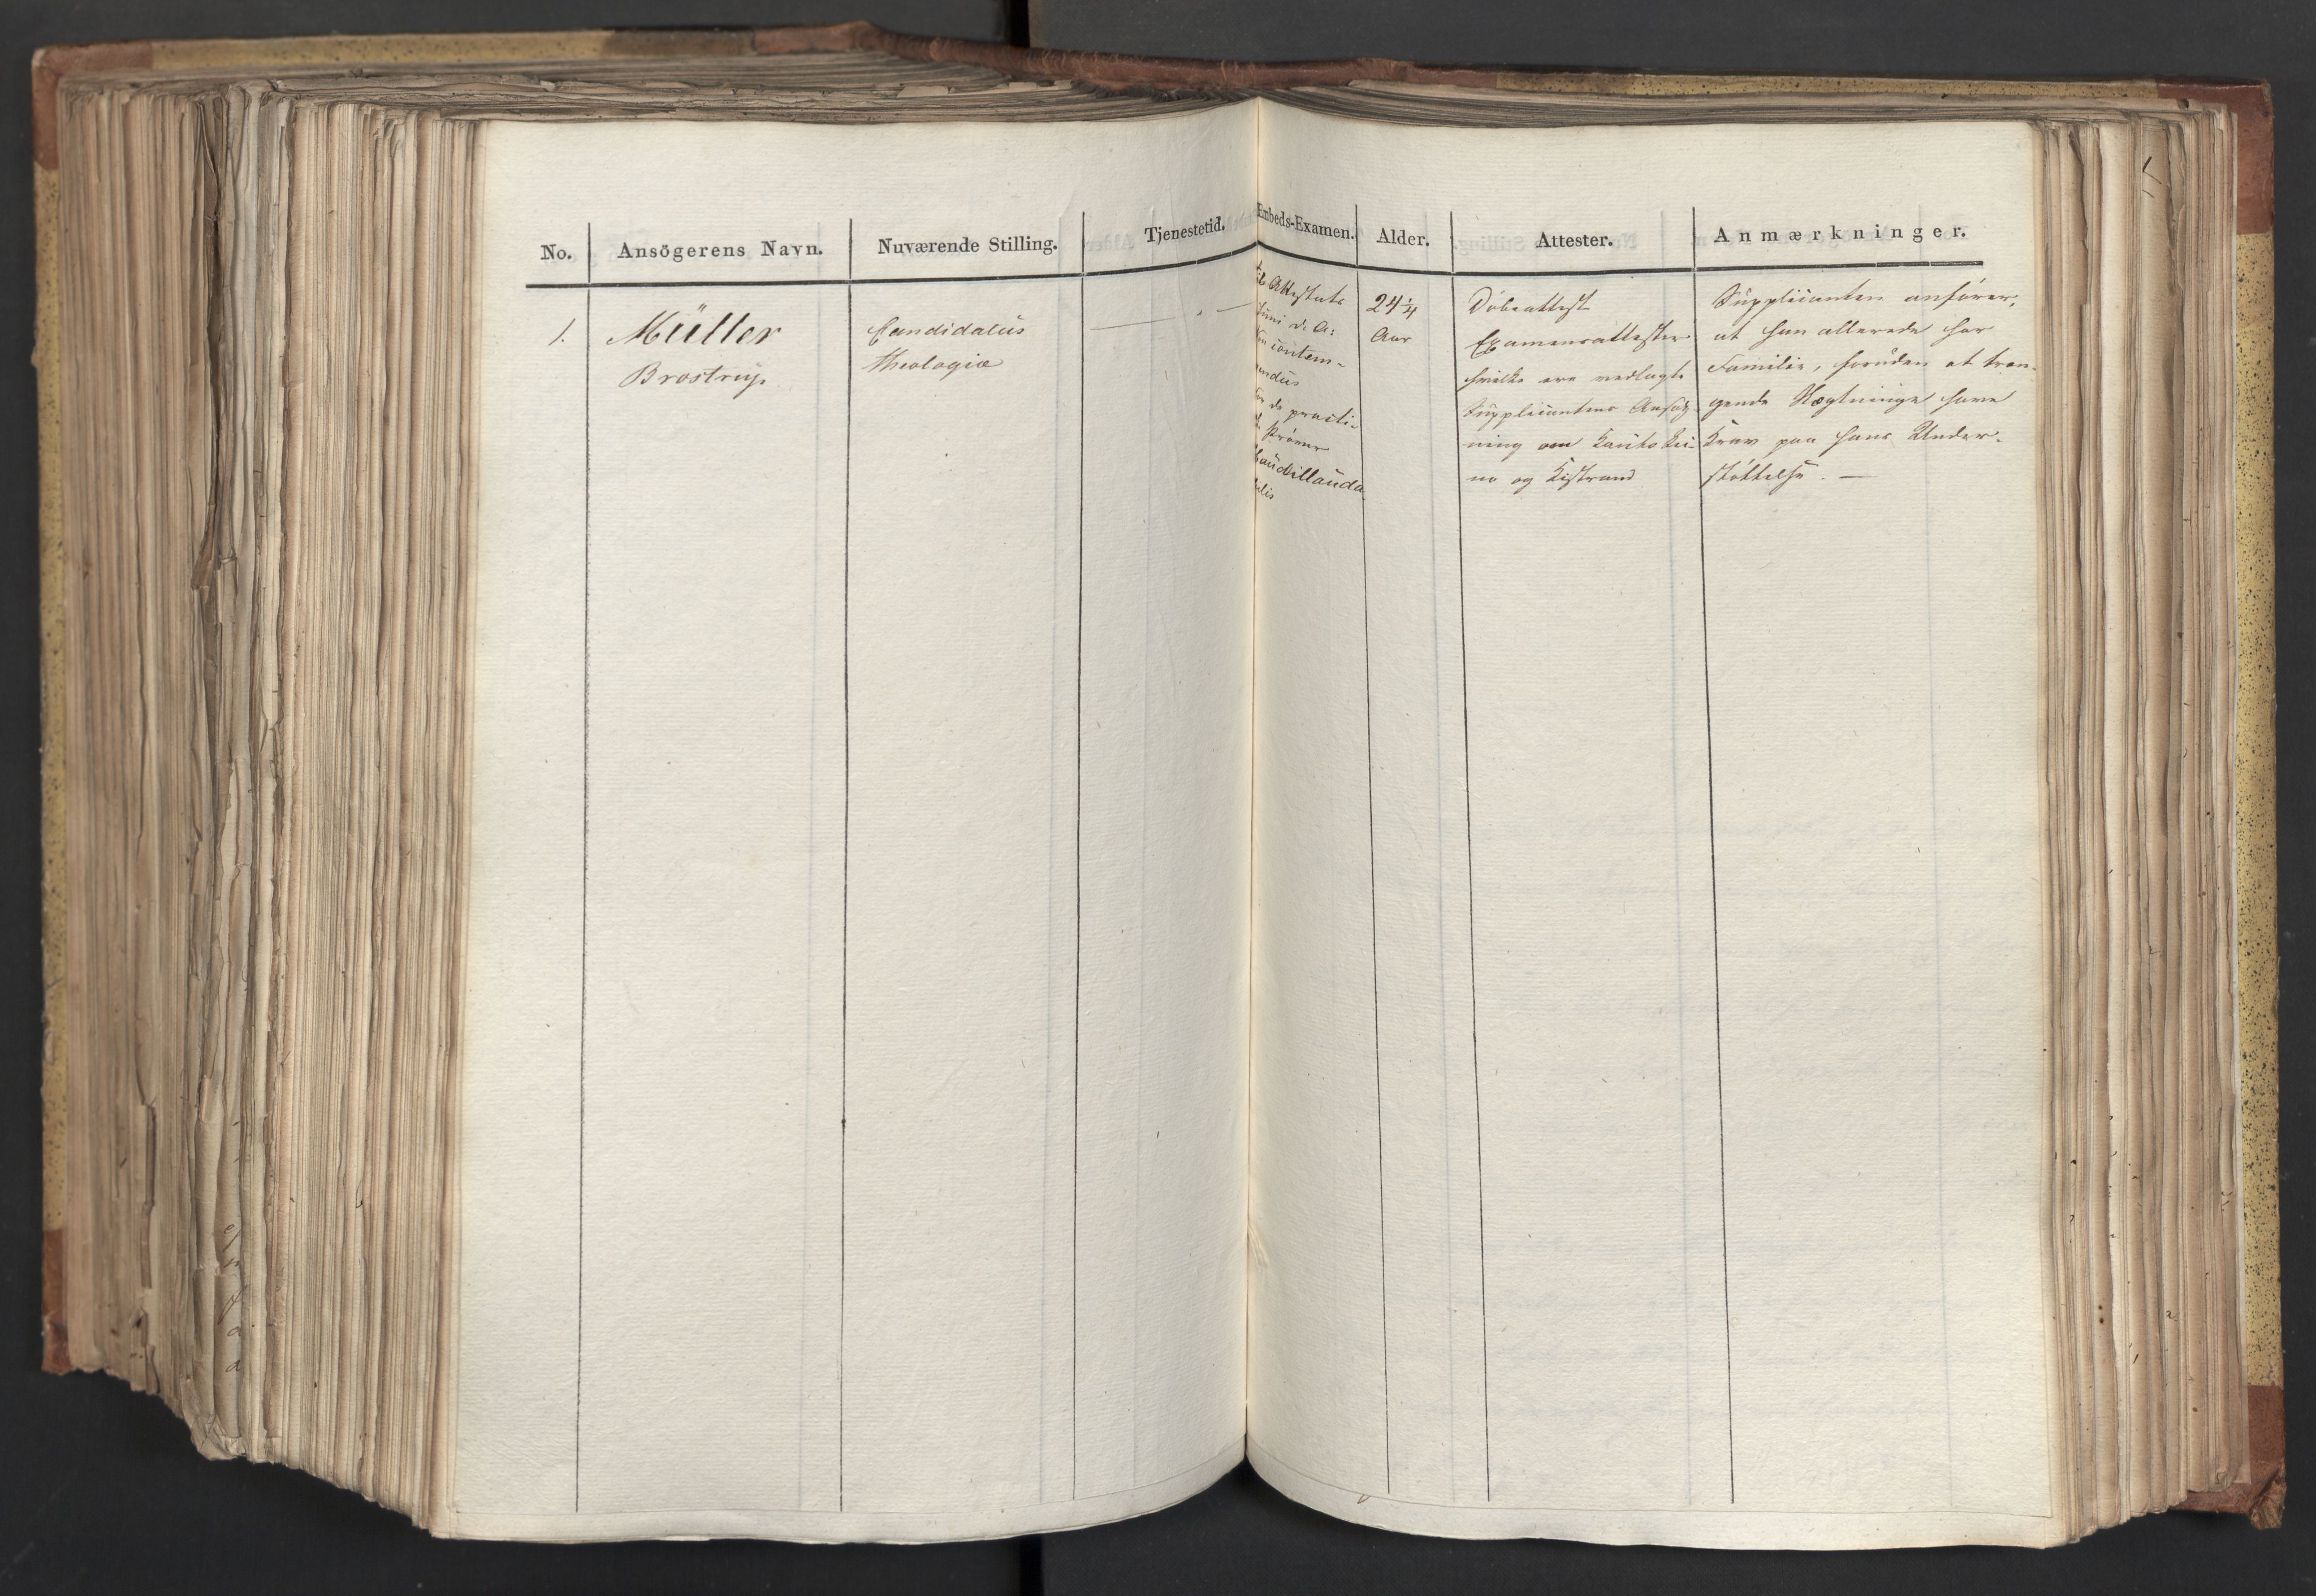 No. Ansögerens Navn. Nuværende Stilling. Tjenestetid. Embeds-Examen. Alder. Attester. Anmærkninger.
1.
Müller
Brostrup
Candidatus
theologiæ
Attestats
Juni d. A:
Non contem-
nendus
for de practi-
ske Prøver
haud illauda
bilis
24¼
Aar
Døbeattest
Examensattester
hvilke ere vedlagte
Supplicantens Ansøg-
ning om Kautokei-
no og Kistrand
Supplicanten anfører,
at han allerede har
Familie, foruden at træn-
gende Slægtninge have
Krav paa hans Under-
støttelse. —